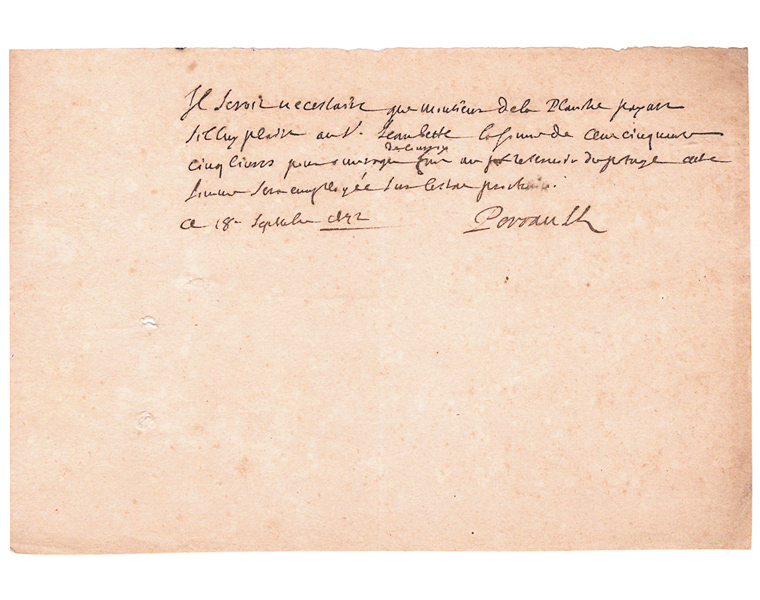 Il seroit necessaire que monsieur de la Planche payast
s'il luy plaist au Sr. la somme de cent cinquante
cinq livres pour ouvrage au reservoir du potager cette
somme sera employée sur l'estat prochain.
ce 18e Septembre
Perrault